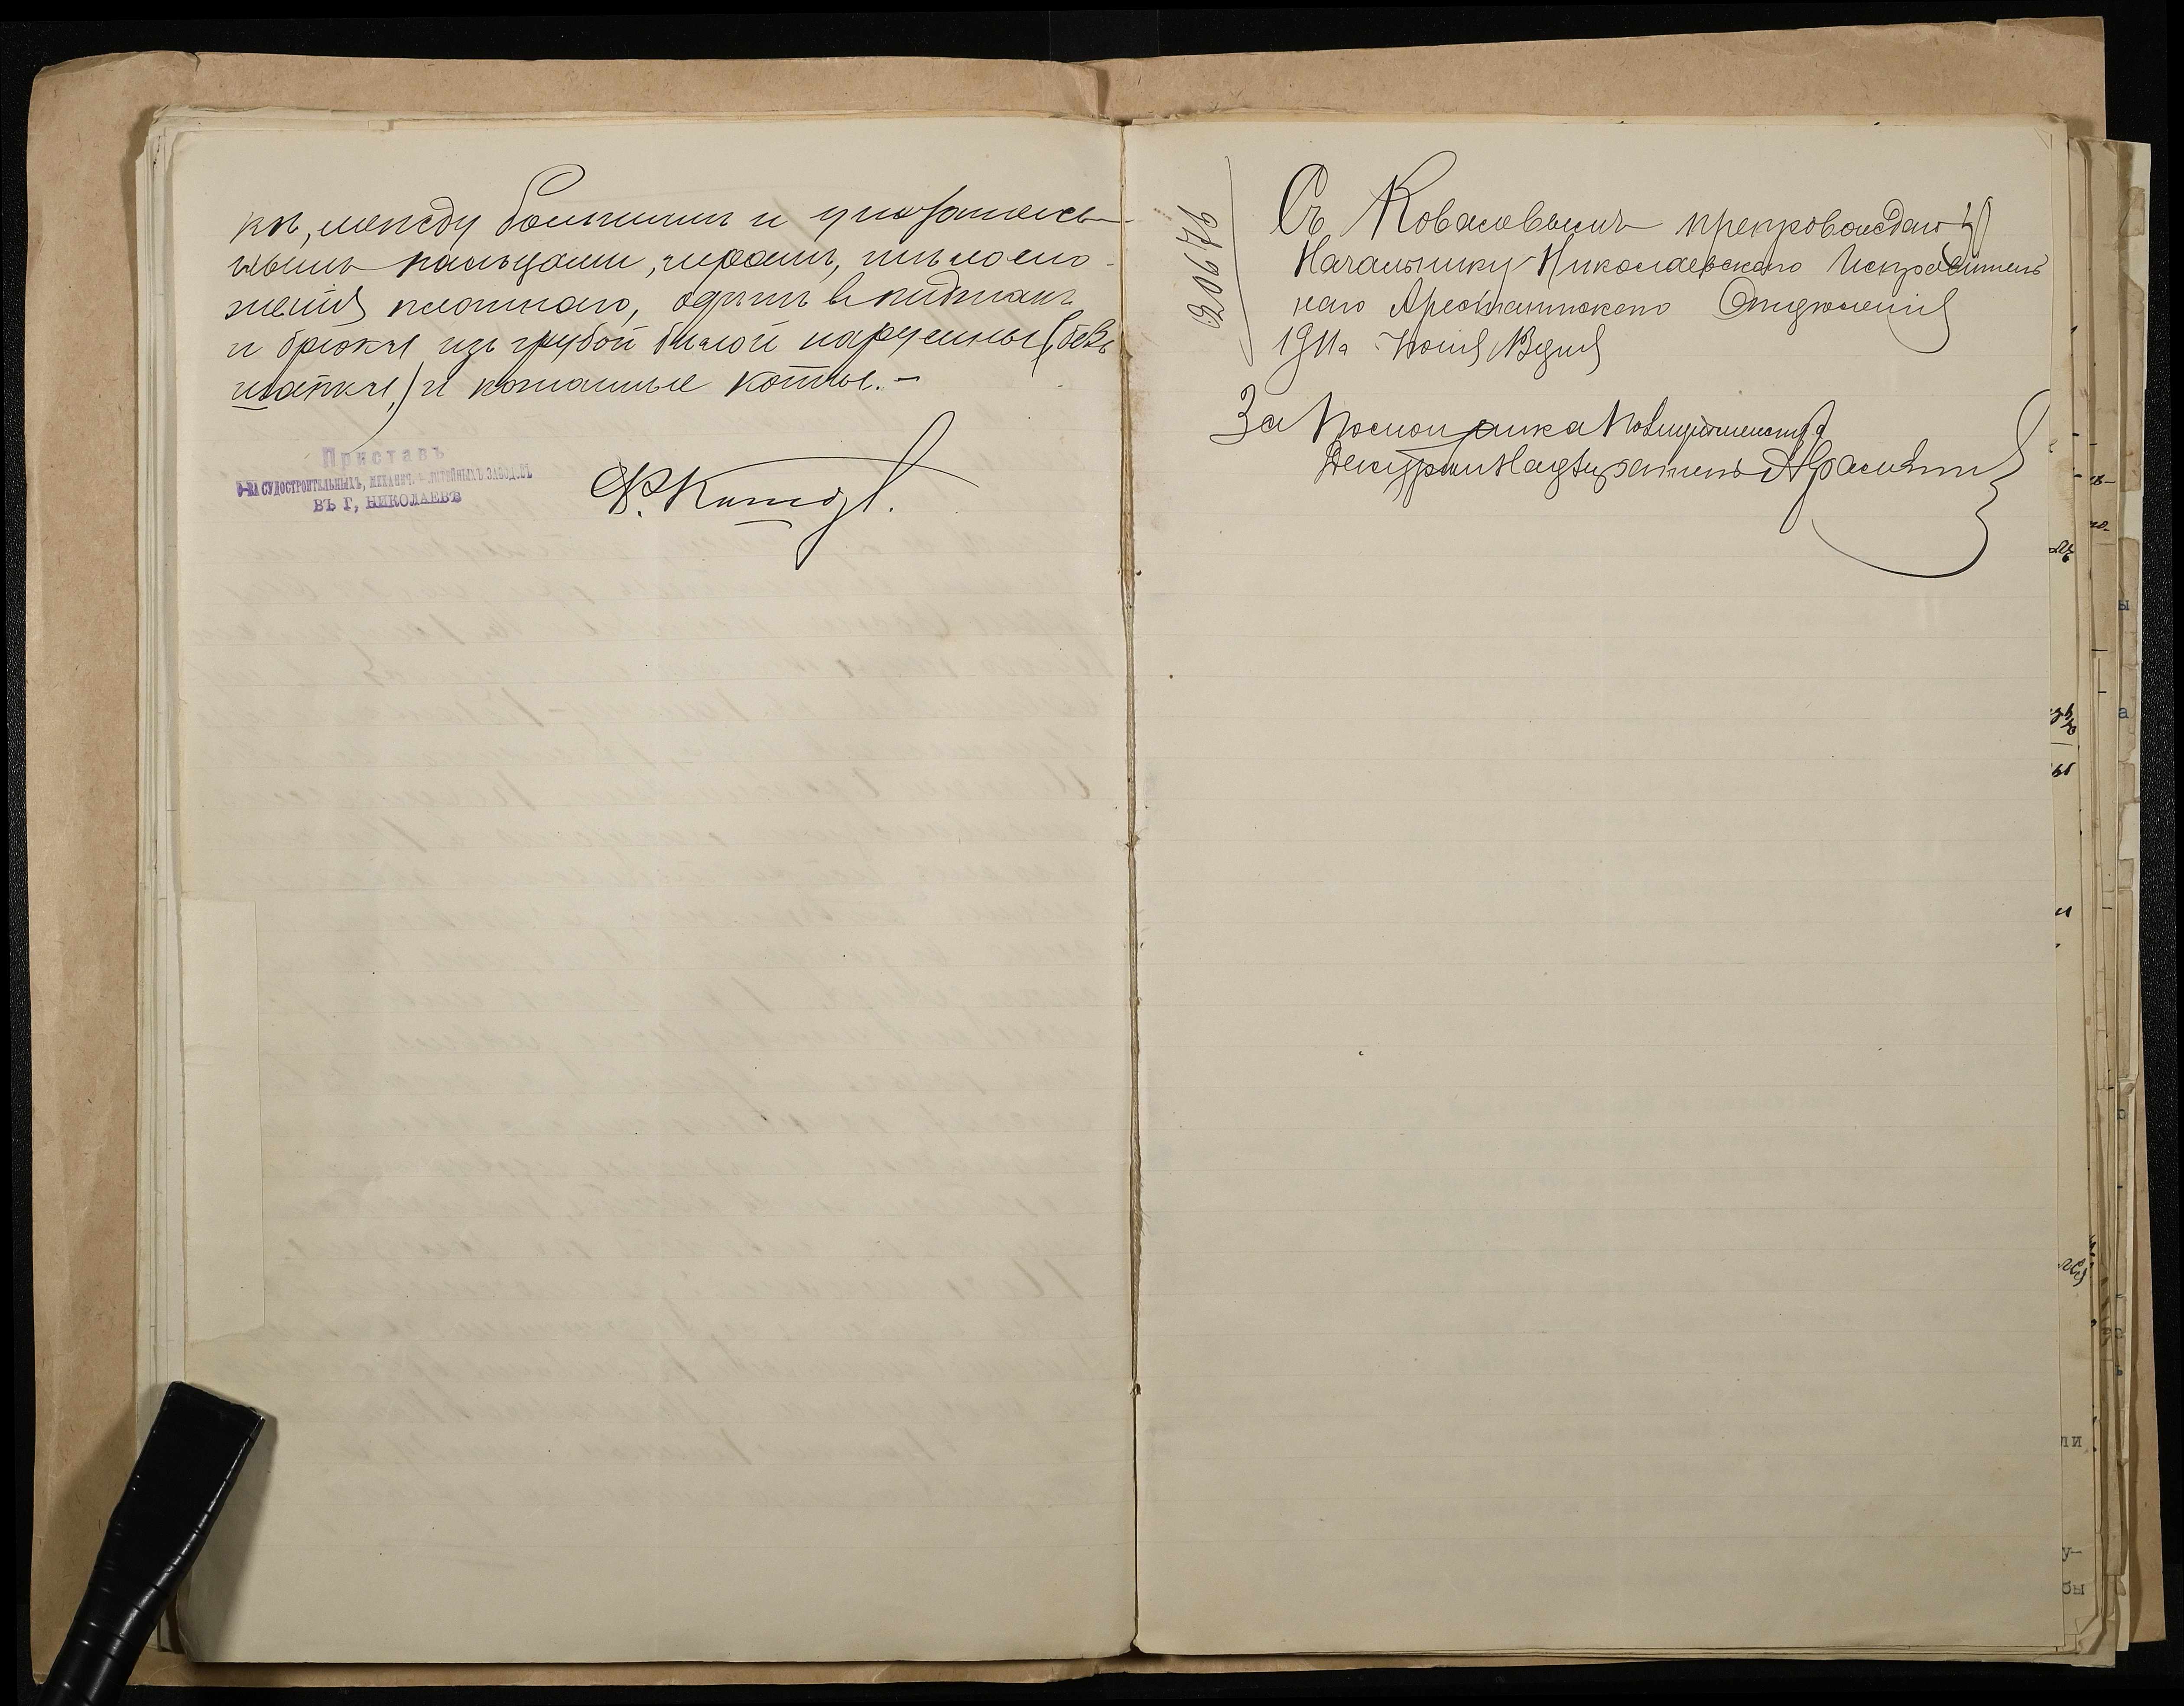 кѣ, между большимъ и указатель-
нымъ пальцами, шрамъ, тѣлосло-
женія плотнаго, одѣтъ въ пиджакъ
и брюки изъ грубой бѣлой парусины (безъ
шапки,) и кожаные коты.–
Приставъ
О-ВА СУДОСТРОИТЕЛЬНЫХЪ, МЕХАНИЧ. и ЛИТЕЙНЫХЪ ЗАВОД.ВЪ
ВЪ Г, НИКОЛАЕВѢ
Съ Ковалевымъ препровождаю
Начальнику Николаевскаго Исправитель
наго Арестантскаго Отдѣленія
1911 г. Іюня
20678
За Помощника
Дежурный Надзиратель